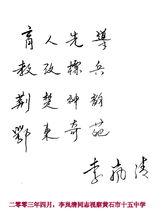 育人先導
教改標兵
荆楚神韵
鄂東奇葩
李岚清
二零零三年四月，李岚清同志视察黄石市十五中学